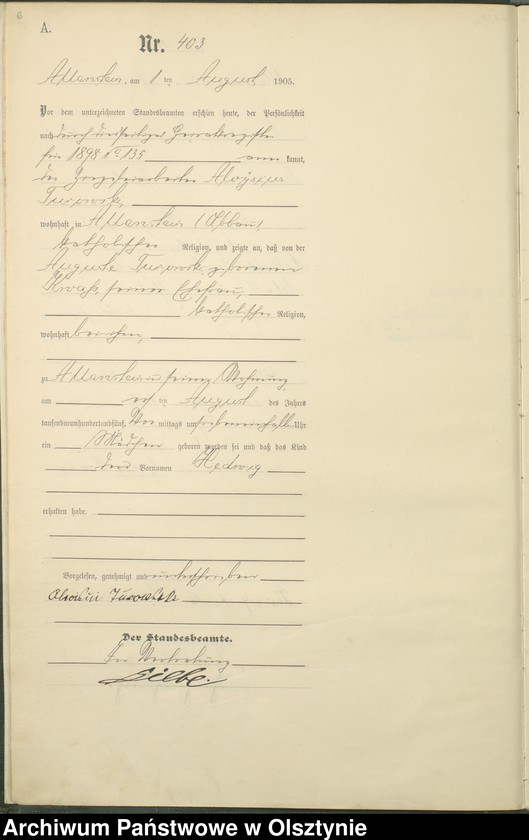 6
A.
Nr. 403
Allenstein, am 1 ten August 1905.
Vor dem unterzeichneten Standesbeamten erschien heute, der Persönlichkeit
nach durch
für 1898 No 135 kannt,
der Aloysius
Turowski,
wohnhaft in Allenstein (Abbau)
katholischer Religion, und zeigte an, daß von der
Auguste Turowski geborenen
seiner Ehefrau,
katholischer Religion,
wohnhaft bei ihm,
zu Allenstein in seiner Wohnung
am ten August des Jahres
tausendneunhundertfünf, Vor mittags um siebeneinhalb Uhr
ein Mädchen geboren worden sei und daß das Kind
den Vornamen Hedwig
erhalten habe.
Vorgelesen, genehmigt und unterschrieben
Turowski
Der Standesbeamte.
In Vertretung
Archiwum Państwowe w Olsztynie